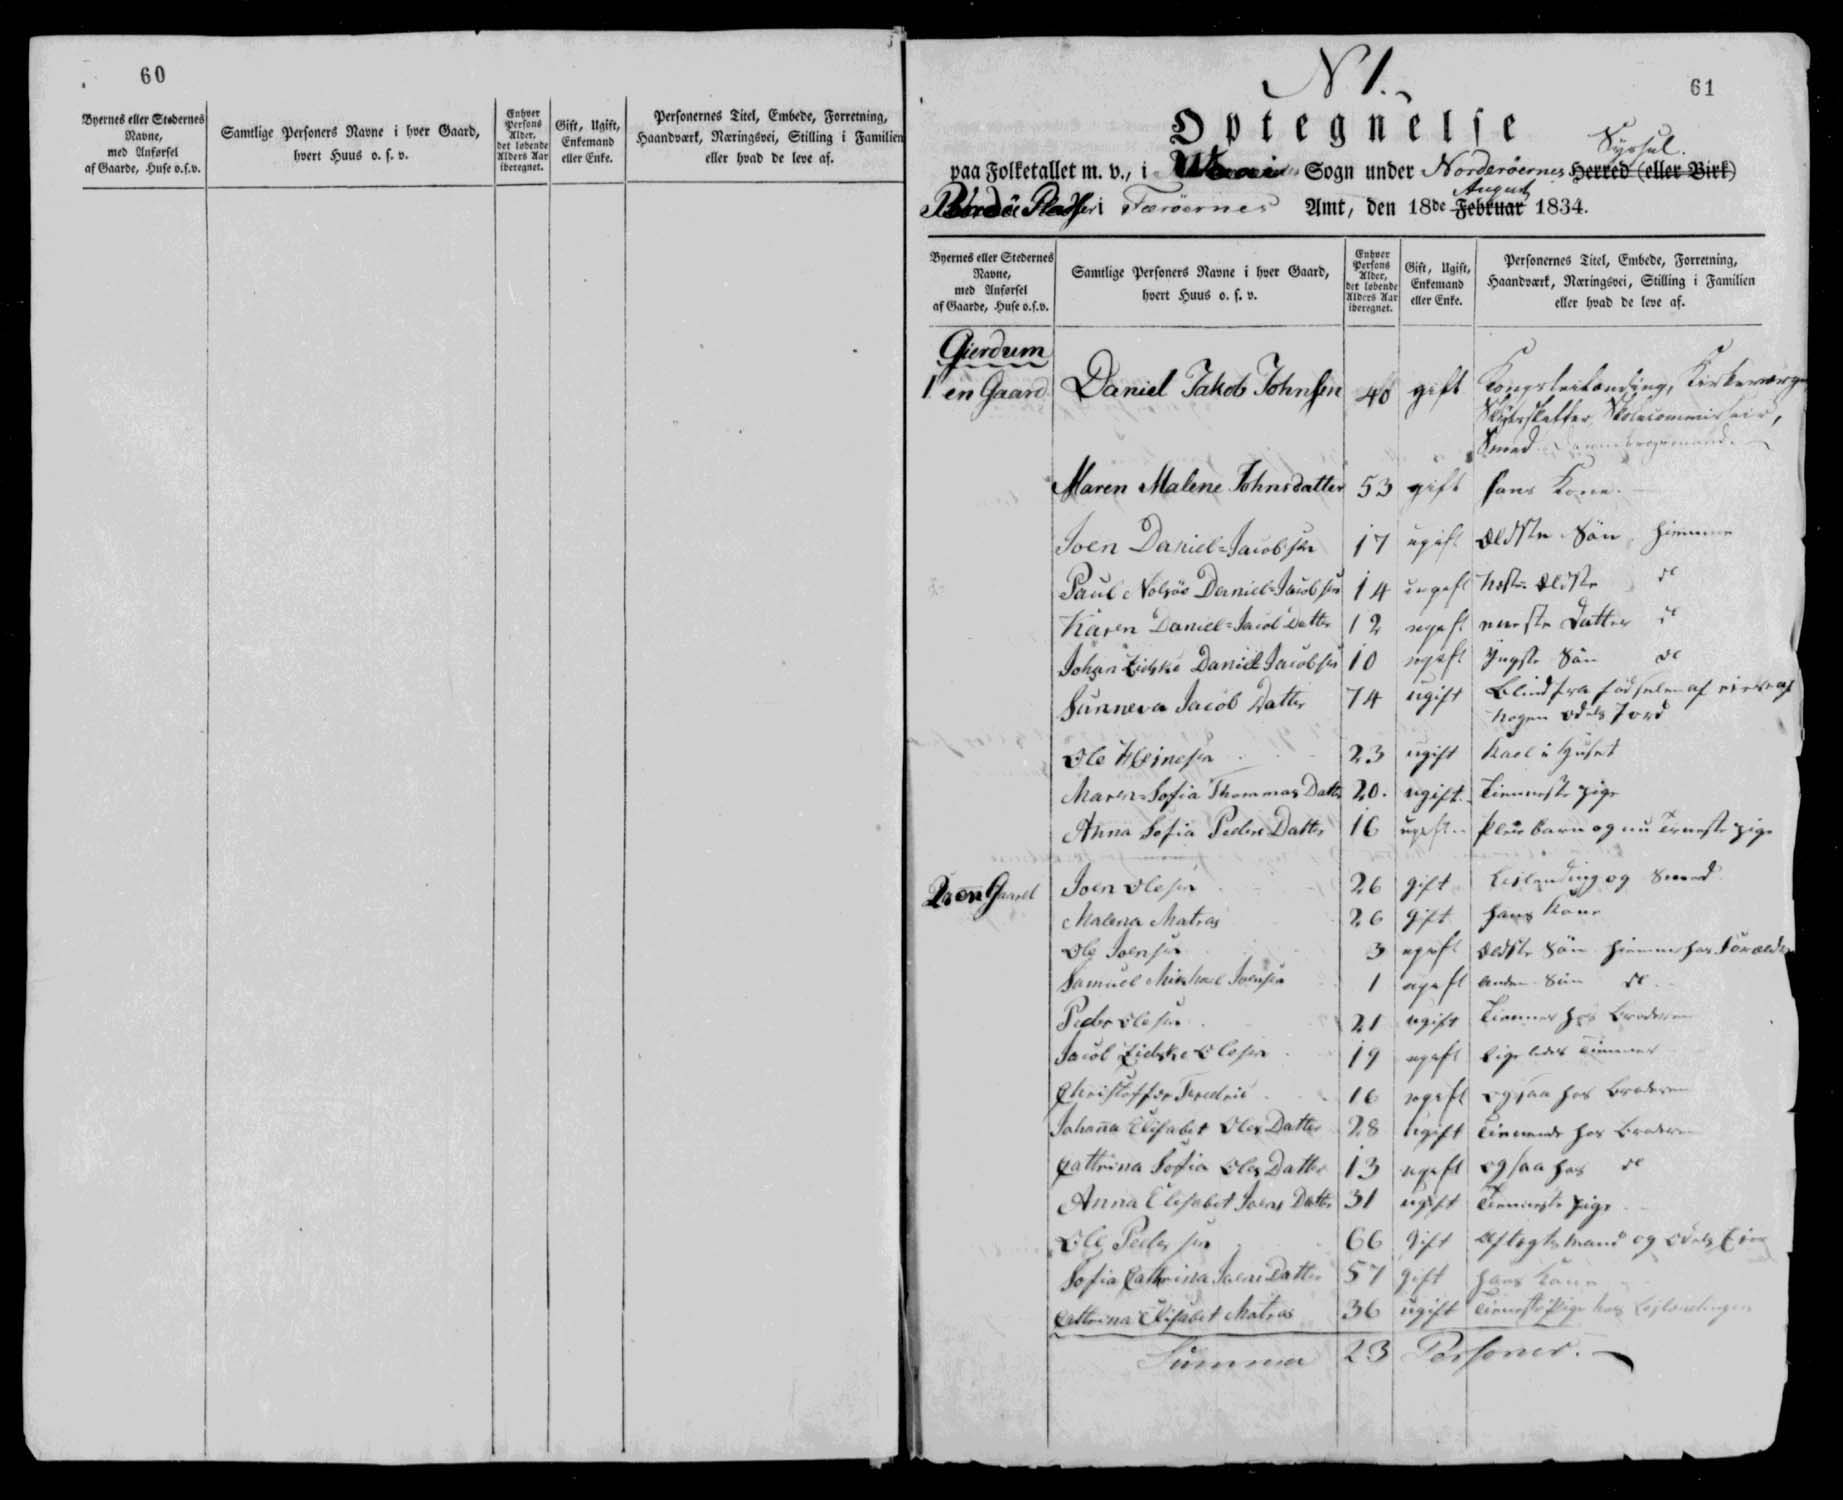 60
Byernes eller Stedernes
Navne,
med Anførsel
af Gaarde, Huse o.s.v.
Samtlige Personers Navne i hver Gaard,
hvert Huus o. s. v.
Enhver
Persons
Alder,
det løbende
Alders Aar
iberegnet.
Gift, Ugift,
Enkemand
eller Enke.
Personernes Titel, Embede, Forretning,
Haandværk, Næringsvei, Stilling i Familien
eller hvad de leve af.
N 1.
61
Optegnelse
Syssel.
paa Folketallet m. v., i Sogn under Norderöernes Herred (eller Birk)
August
i Færöernes Amt, den 18de Februar 1834.
Byernes eller Stedernes
Navne,
med Anførsel
af Gaarde, Huse o.s.v.
Samtlige Personers Navne i hver Gaard,
hvert Huus o. s. v.
Enhver
Persons
Alder,
det løbende
Alders Aar
iberegnet.
Gift, Ugift,
Enkemand
eller Enke.
Personernes Titel, Embede, Forretning,
Haandværk, Næringsvei, Stilling i Familien
eller hvad de leve af.
Gierdum
1 en Gaard Daniel Jakob Johnsen 40 gift Kongsleilending, Kirkeværge
Skydsskaffer, Skolecommissair,
Smed Dannebrogsmand.
Maren Malene Johnsdatter 53 gift hans Kone.
Joen Daniel=Jacobsen 17 ugift Ældste Sön hiemme
Paul Nolsöe Daniel=Jacobsen 14 ugift Næst Ældste do
Karen Daniel=Jacob Datter 12 ugift eneste Datter do
Johan Zidske Daniel Jacobsen 10 ugift yngste Sön do
Sunneva Jacob Datter 74 ugift Blind fra födselen af
nogen odels Jord
Ole Heinesen 23 ugift Karl i Huset
Maren=Sofia Thommas Datter 20. ugift Tienneste pige
Anna Sofia Peders Datter 16 ugift Pleie barn og nu Tieneste pige
2 en Gaard Joen Olesen 26 gift Leilending og Smed
Malena Matras 26 gift hans Kone
Ole Joensen 3 ugift Ældste Sön hiemme hos Forældre
Samuel Mickael Joensen 1 ugift anden Sön do
Peder Olesen 21 ugift Tienner hos Broderen
Jacob Zidske Olesen 19 ugift ligeledes Tienner
Christoffer Fredric 16 ugift ogsaa hos Broderen
Johanna Elisabet Oles Datter 28 ugift Tiennende hos Broderen
Cattrina Sofia Oles Datter 13 ugift ogsaa hos do
Anna Elisabet Joens Datter 31 ugift Tienneste pige
Ole Pedersen 66 Gift Aftegts mand og Odels Eier
Sofia Cathrina Joens Datter 57 gift hans Kone
Cattrina Elisabet Matras 36 ugift Tienestepige hos Leilendingen
Summa 23 Personer.